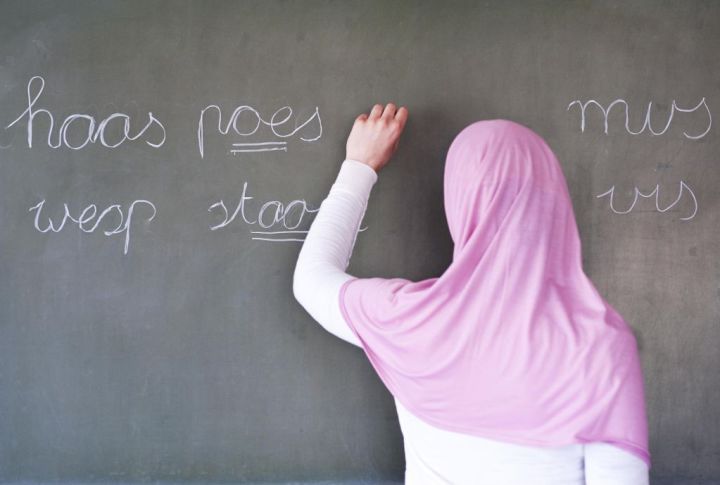 haas poes mus
wesp vis